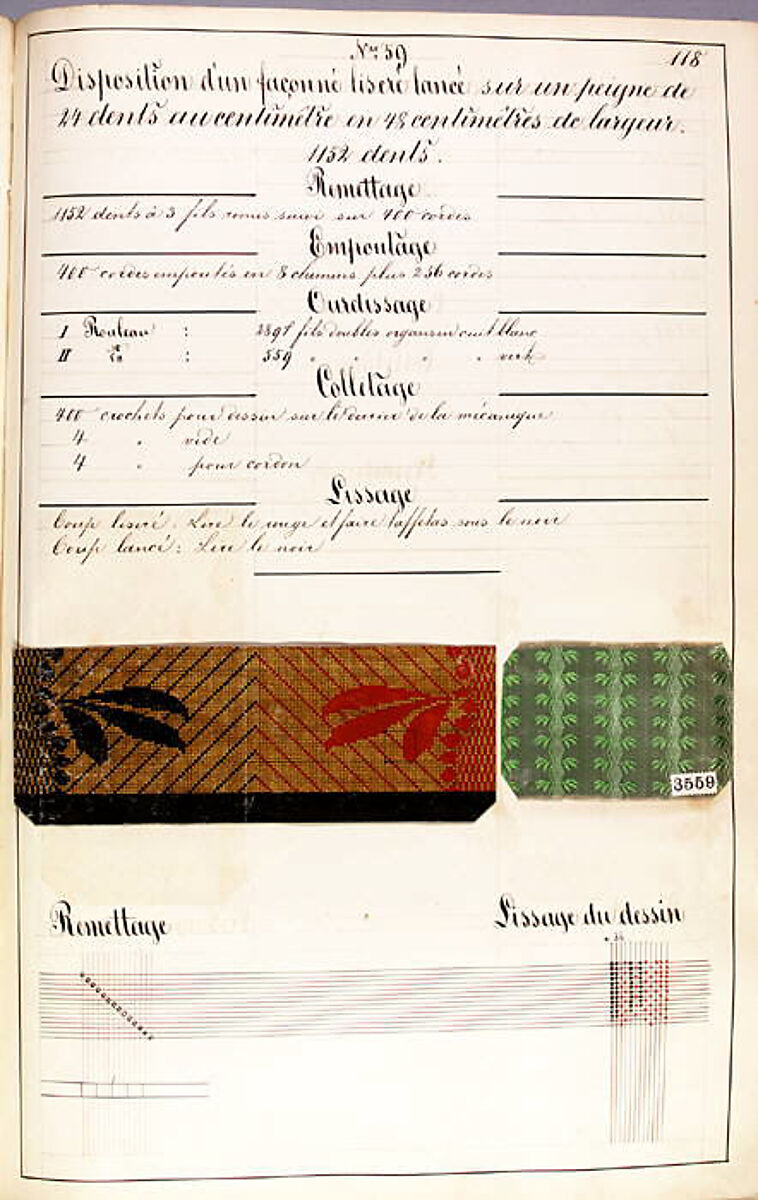 N° 59
118
Disposition d'un façonné liseré lancé sur un peigne de
24 dents au centimètre en 48 centimètres de largeur.
1152 dents.
Remettage
1152 dents à 3 fils remis suivi sur 400 cordes
Empoutage
400 cordes empoutés en 8 chemins plus 256 cordes
Ourdissage
I Rouleau : fils doubles organsin cuit blanc
II " : 559 " " " " vert
Colletage
400 crochets pour dessin sur le derrière de la mécanique
4 " vide
4 " pour cordon
Lissage
Coup liseré : Lire le rouge et faire taffetas sous le noir
Coup lancé : Lire le noir
3559
Remettage
Lissage du dessin